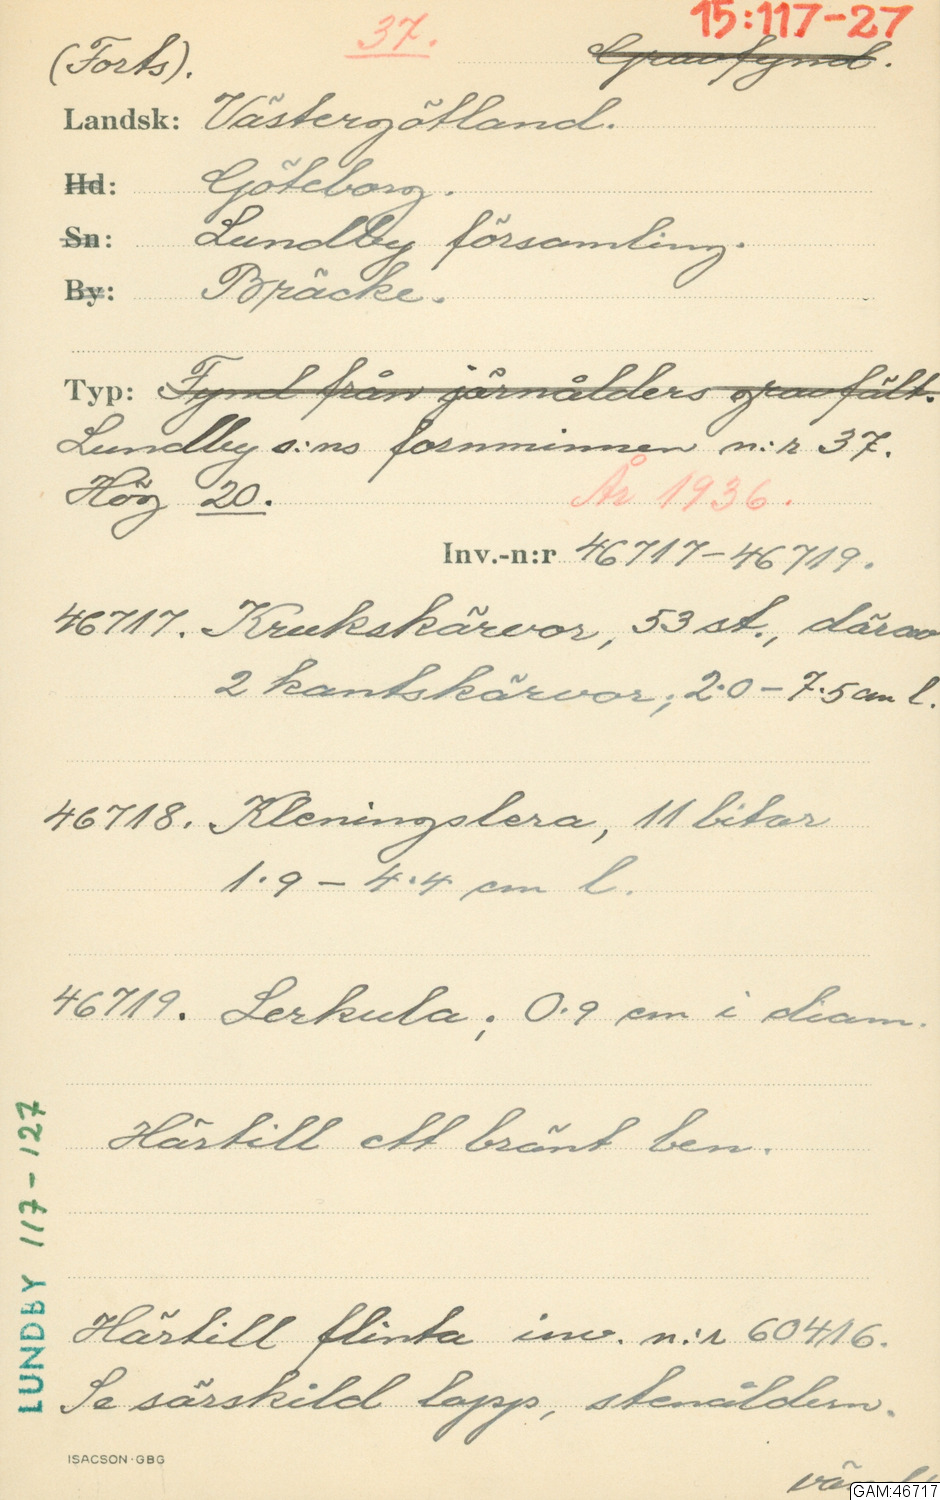 15:117-27
37.
(Forts). Gravfynd.
Landsk: Västergötland.
Hd: Göteborg.
Sn: Lundby församling.
By: Bräcke.
Typ: Fynd från järnålders gravfält.
Lundby s:ns fornminnen n:r 37.
Hög 20. År 1936.
Inv.-n:r 46717-46719.
46717. Krukskärvor, 53 st., därav
2 kantskärvor; 2.0 - 7.5 cm l.
46718. Kleningslera, 11 bitar
1.9 - 4.4 cm l.
46719. Lerkula; 0.9 cm i diam.
Härtill ett bränt ben.
Härtill flinta inv. n:r 60416.
Se särskild lapp, stenåldern.
LUNDBY 117-127
ISACSON·GBG
GAM:46717